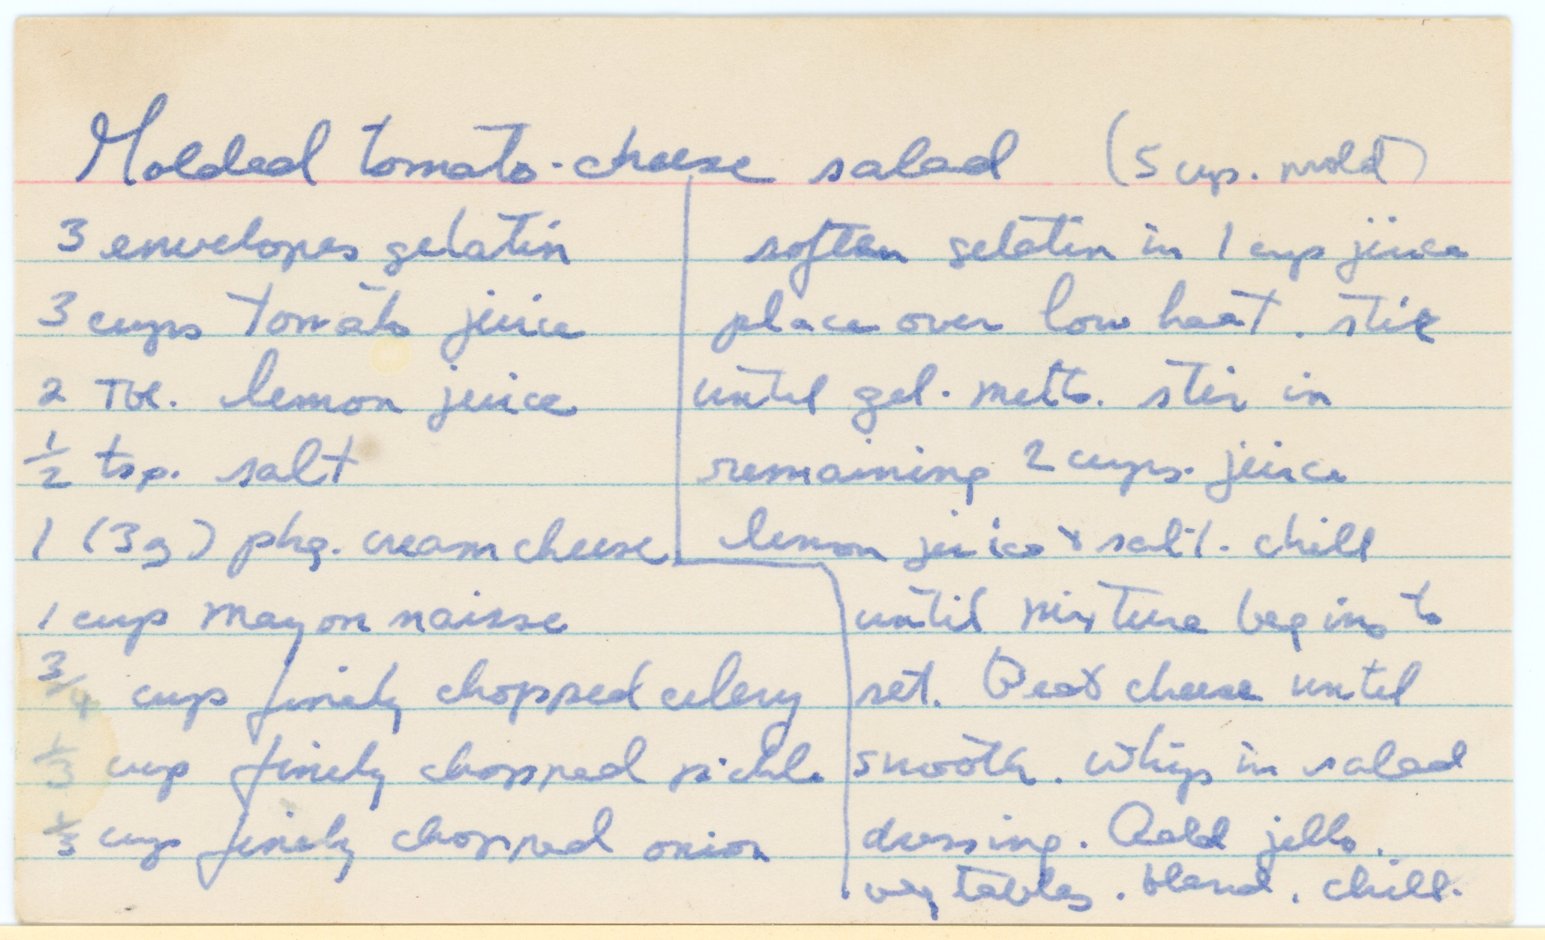 Molded tomato-cheese salad (5 cup. mold)
3 envelopes gelatin
3 cups tomato juice
2 Tbl. lemon juice
1/2 tsp. salt
1 (3 oz) pkg. cream cheese
1 cup mayonnaisse
3/4 cup finely chopped celery
1/3 cup finely chopped pickle
1/3 cup finely chopped onion
soften gelatin in 1 cup juice
place over low heat. stir
until gel. melts. stir in
remaining 2 cups. juice
lemon juice & salt. chill
until mixture begins to
set. Beat cheese until
smooth. Whip in salad
dressing. Add jello.
vegtables. blend. chill.